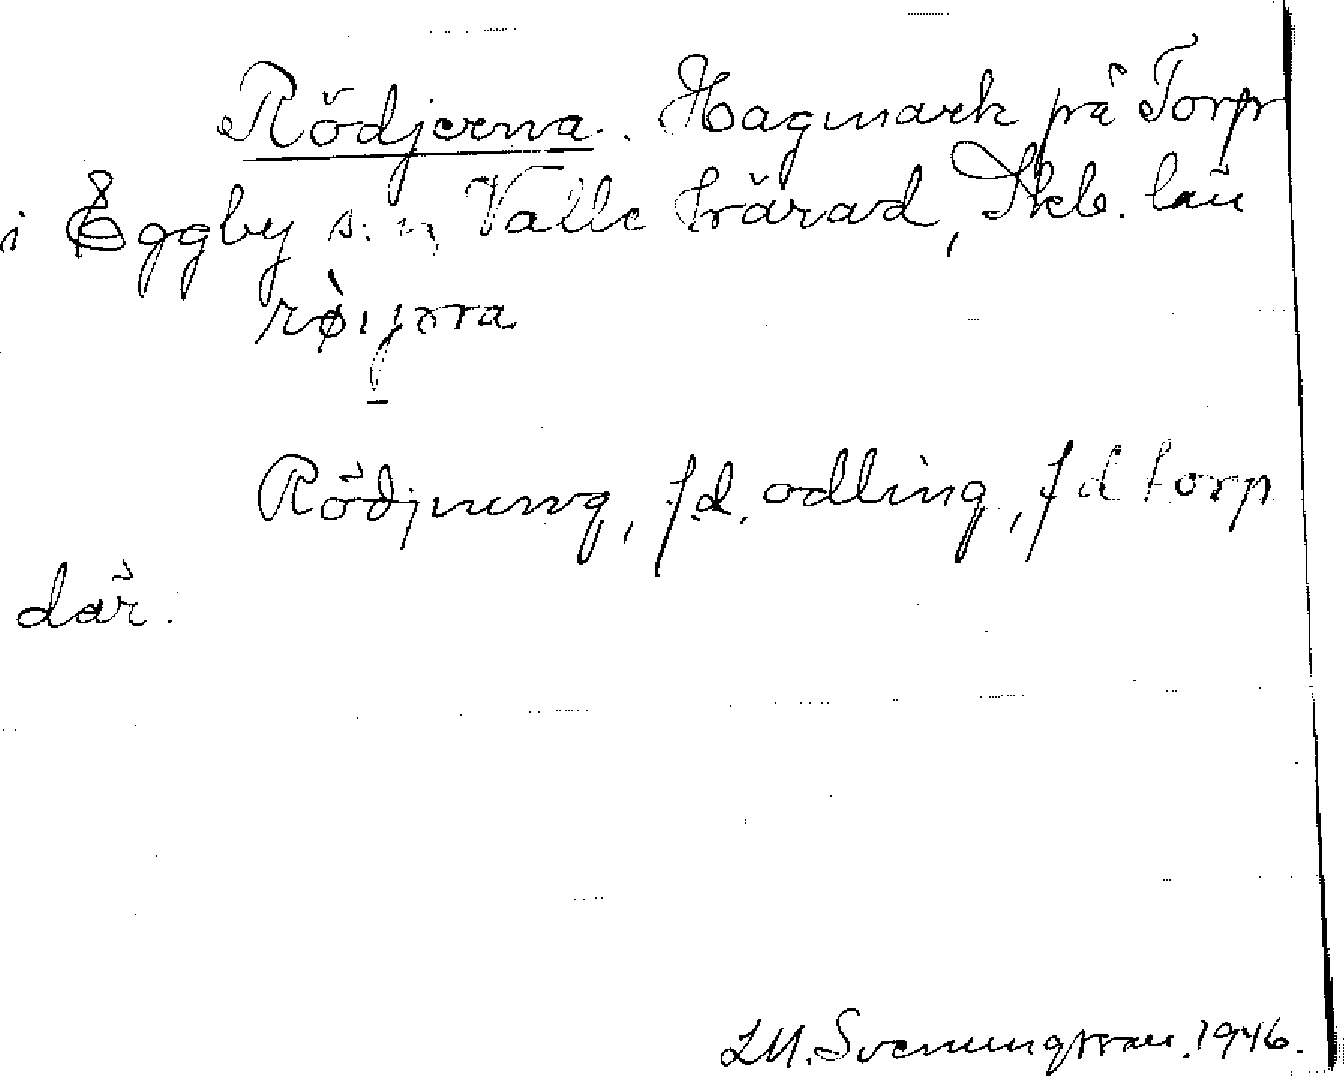 Rödjerna. Hagmark på Torp
i Eggby s:n, Valle härad, Skb. län
rø̀ıjəra
Rödjning, f.d. odling, f d torp
där.
LM. Svenungsson. 1946.